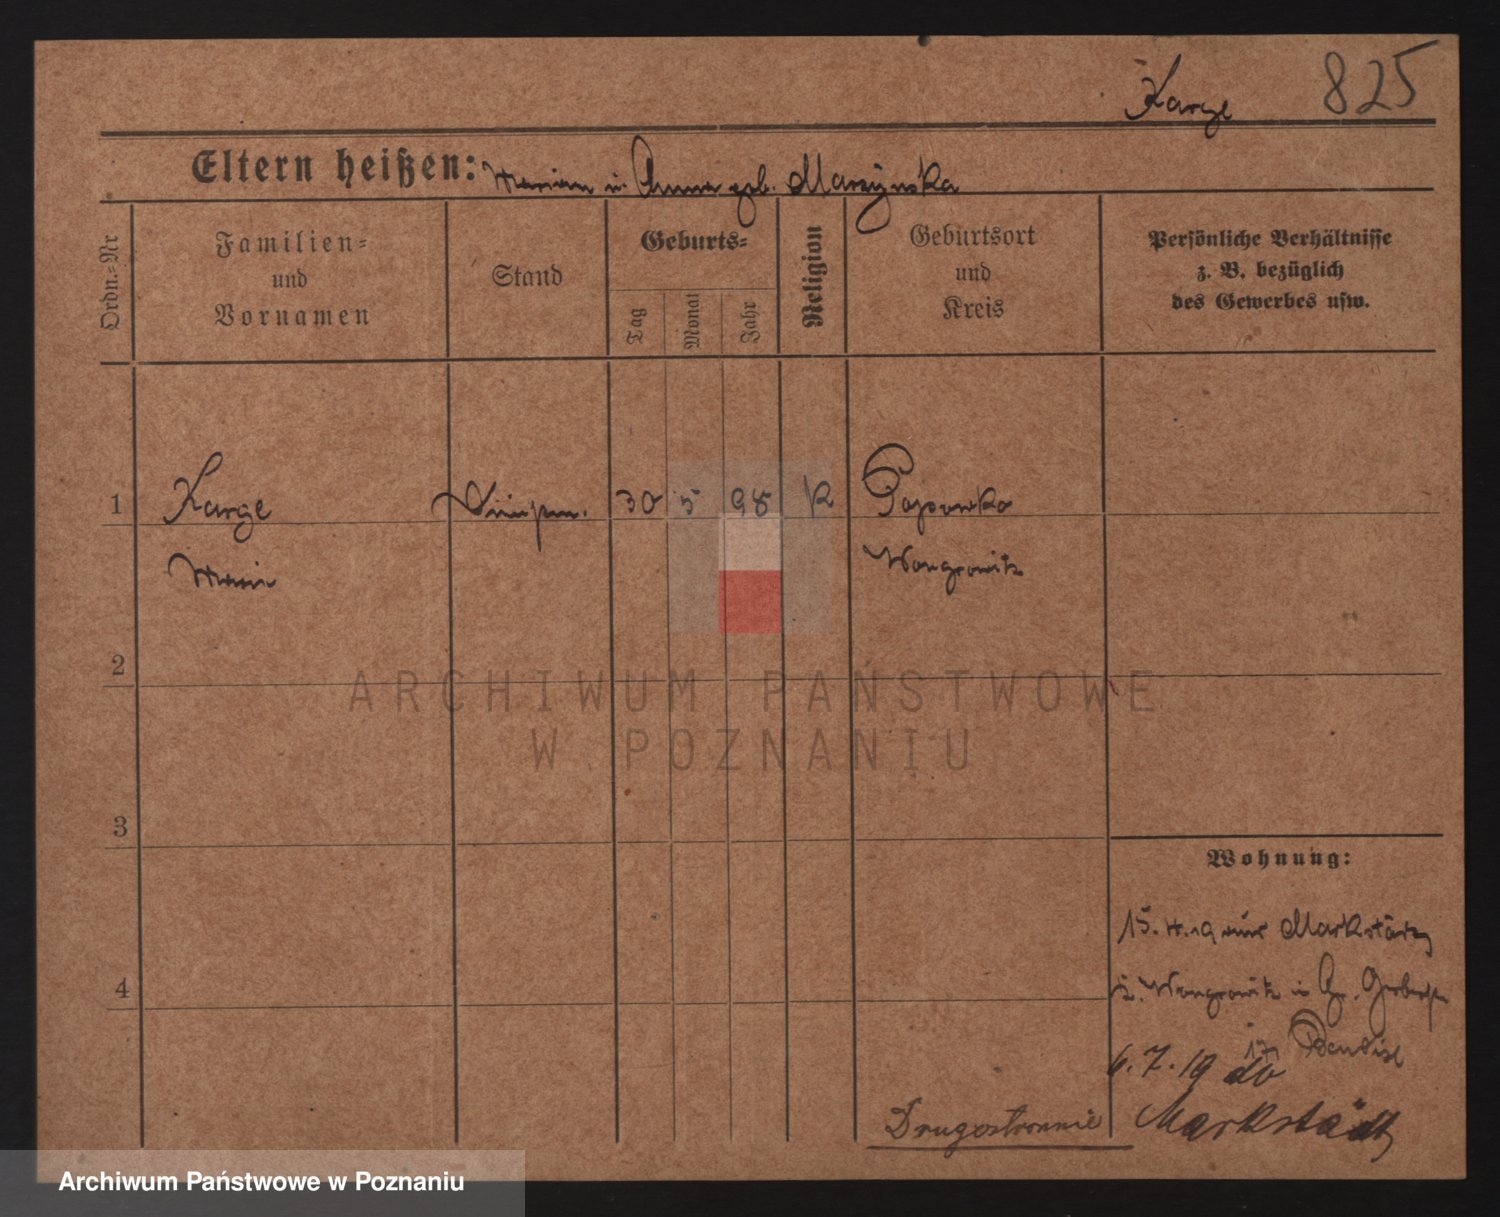 Karge 825
Eltern heißen: Marian u. Anna geb. Marzÿnska
Ordn.=Nr
Familien=
und
Vornamen
Stand
Geburts=
Tag
Monat
Jahr
Religion
Geburtsort
und
Kreis
Persönliche Verhältnisse
z. B. bezüglich
des Gewerbes usw.
1 Karge 30 5 98 K
Wongrowitz
2
ARCHIWUM PAŃSTWOWE
W POZNANIU
3
Wohnung:
15. Markstädt
Wongrowitz
4
6.7.19
Drugostronnie Markstädt
Archiwum Państwowe w Poznaniu